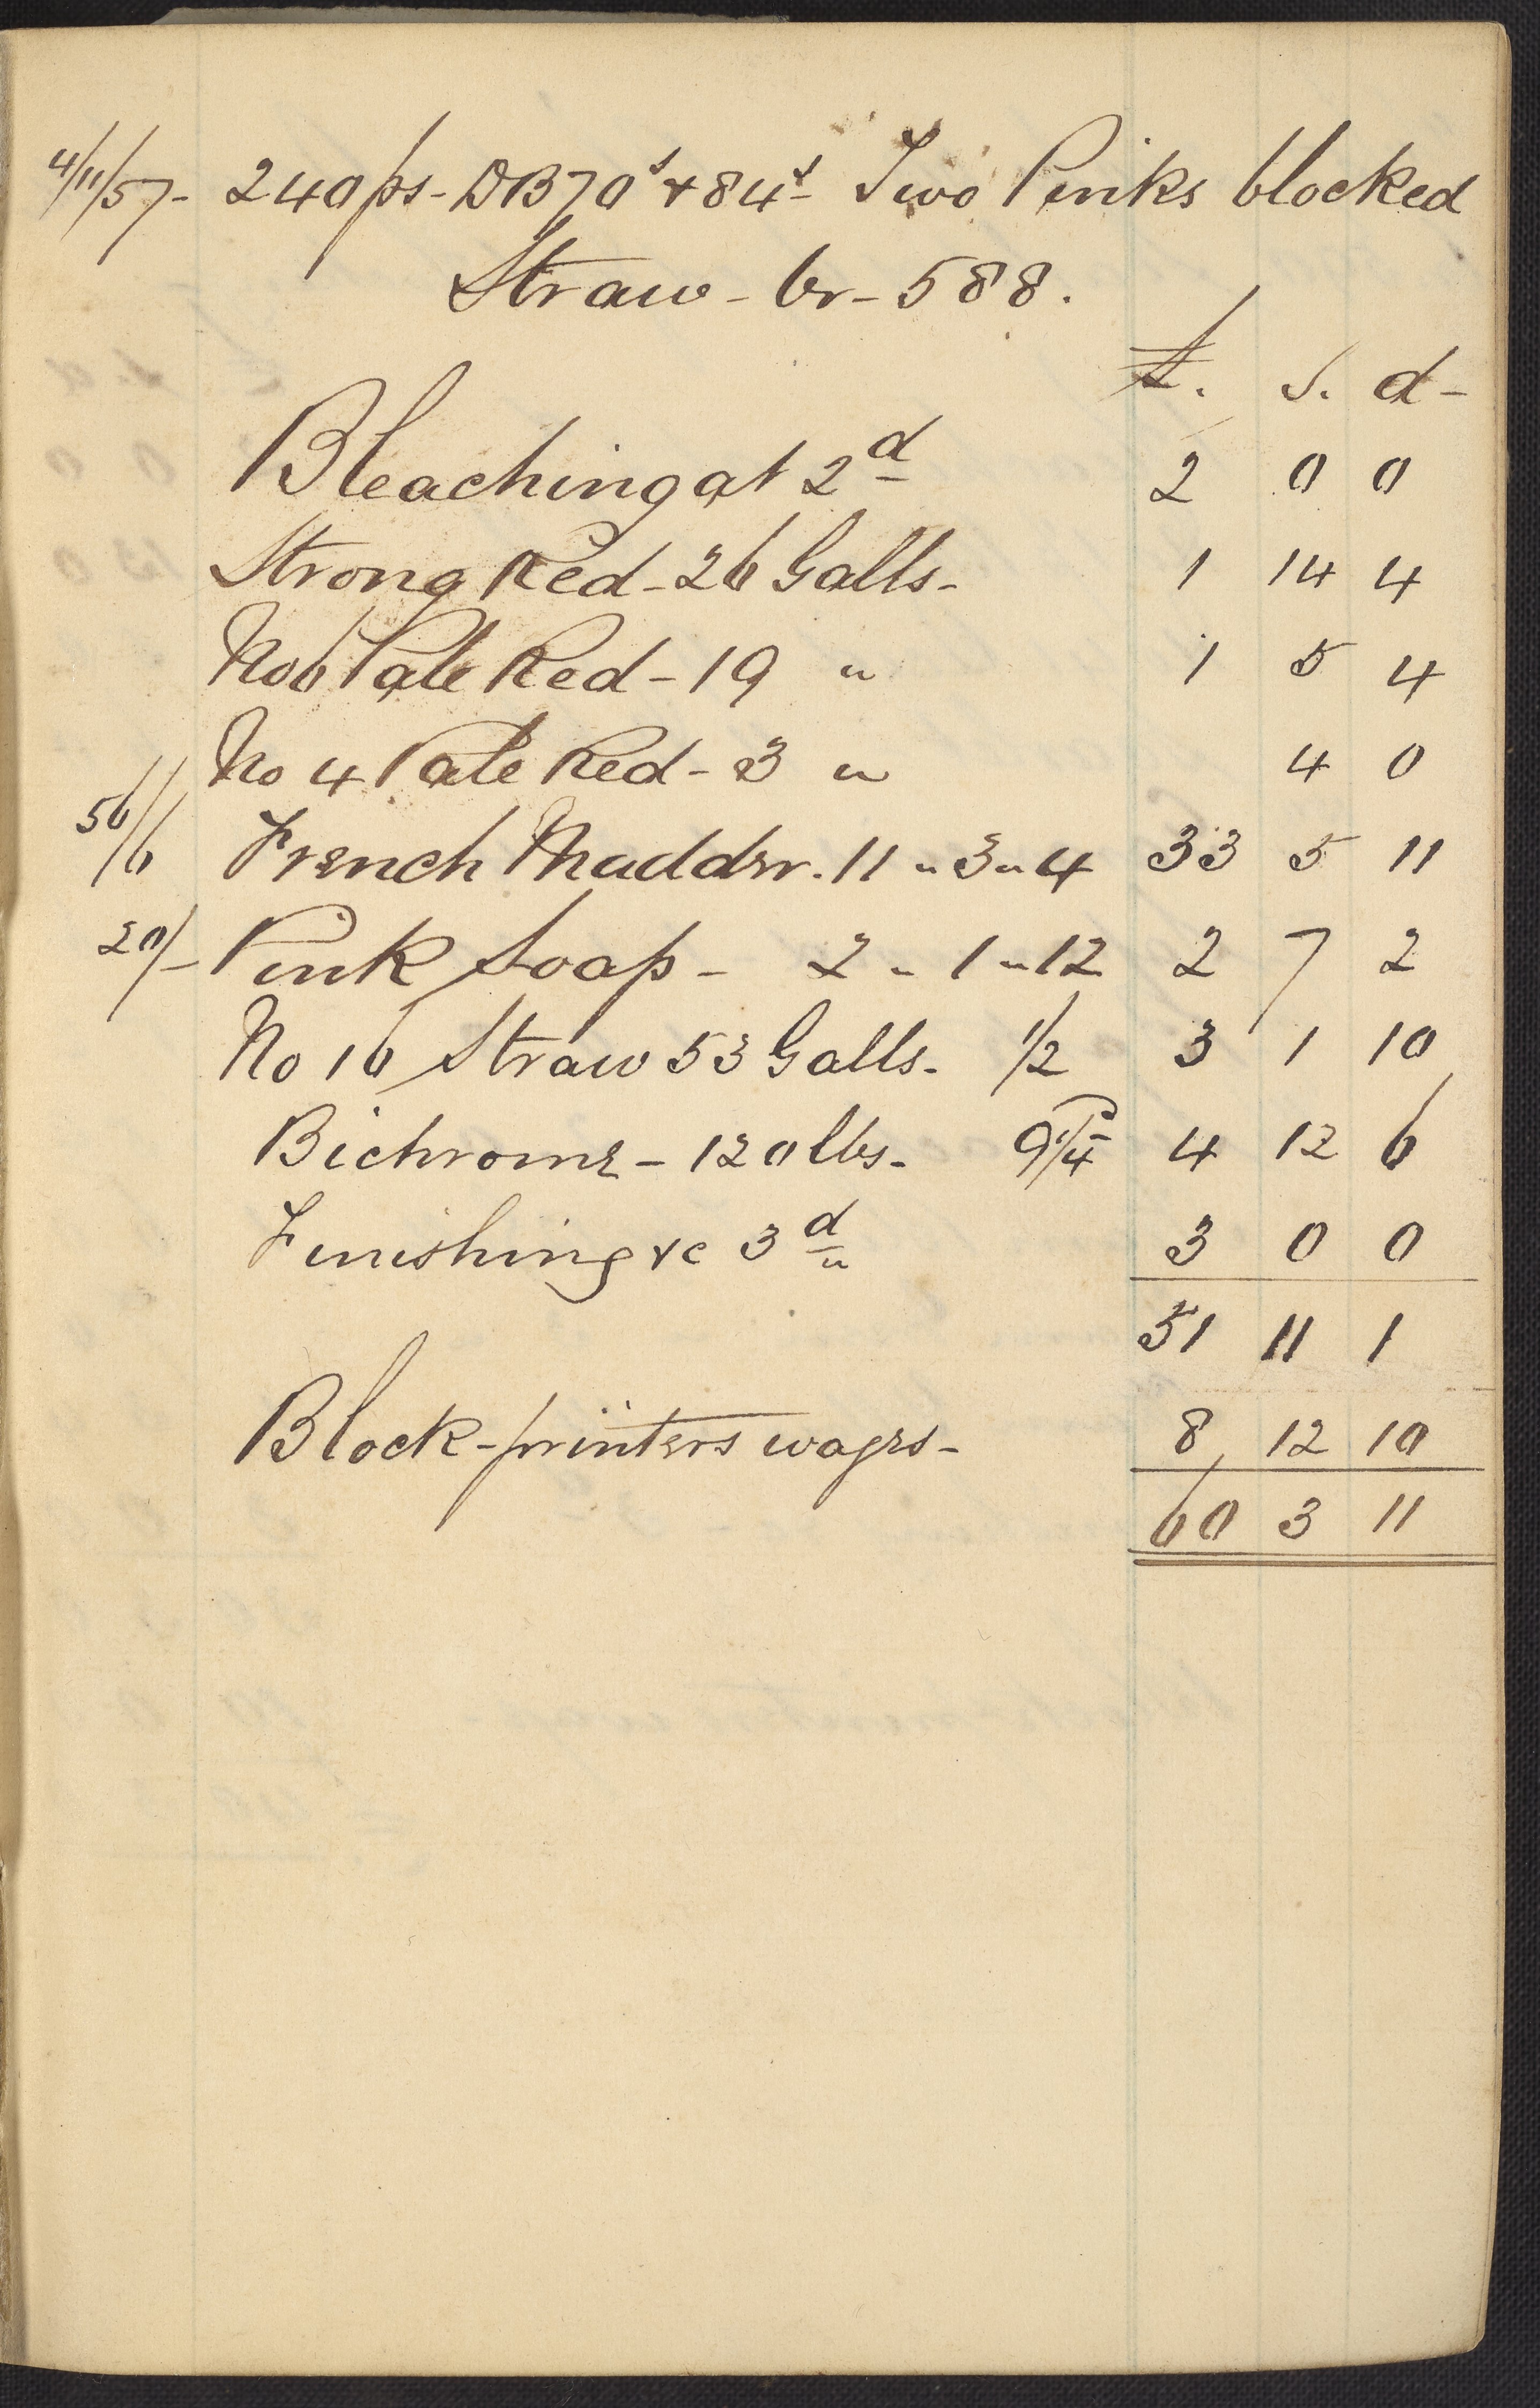 4/11/57- 240 ps - DB 70s & 84s Two Pinks blocked
Straw - br - 588.
£. s. d-
Bleaching at 2d 2 0 0
Strong Red - 26 Galls - 1 14 4
No 6 Pale Red - 19 " 1 5 4
No 4 Pale Red - 3 " 4 0
56/6 French Madder. 11 " 3 " 4 33 5 11
20/- Pink Soap - 2 " 1 " 12 2 7 2
No 16 Straw 53 Galls. 1/2 3 1 10
Bichrome - 120 lbs. 9 1/4 4 12 6
Finishing &c 3d 3 0 0
51 11 1
Block-printers wages - 8 12 10
60 3 11